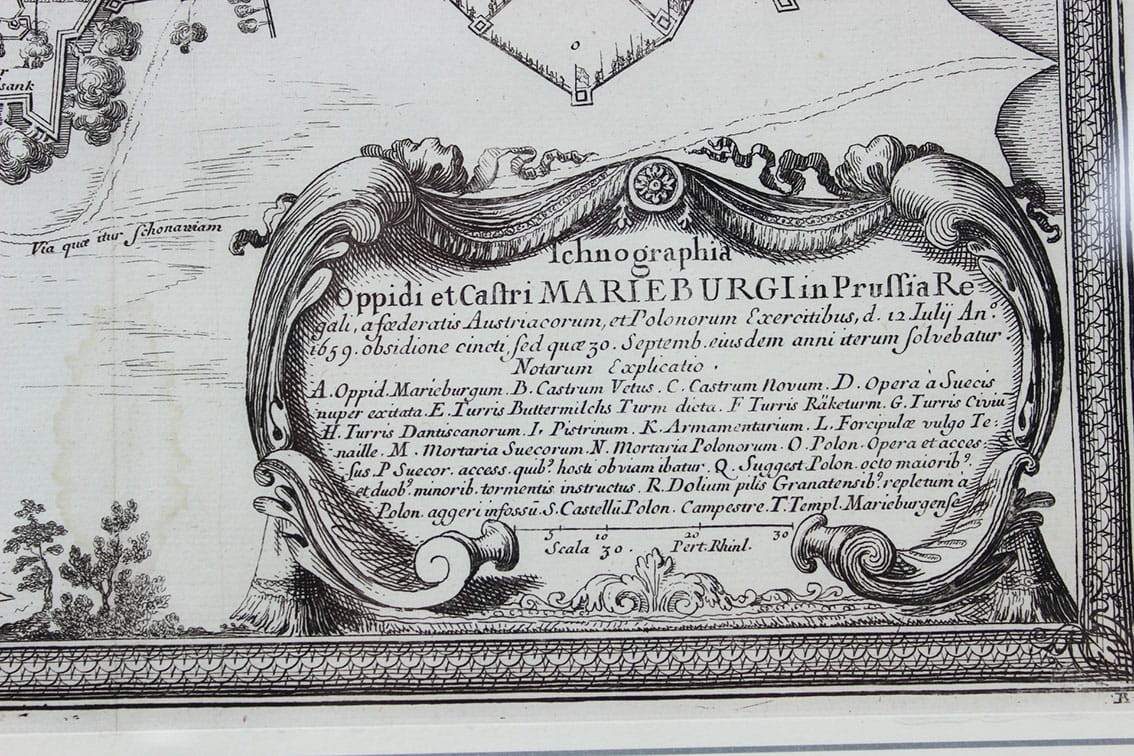 sank
o
Via quæ itur Schonawiam
Ichnographia
Oppidi et Caſtri MARIEBURGI in Pruſſia Re-
gali, a fœderatis Austriacorum, et Polonorum Exercitibus, d. 12 Iulij An:
1659. obsidione cincti, ſed quæ 30. Septemb. eiusdem anni iterum ſolvebatur
Notarum Explicatio.
A. Oppid. Marieburgum. B. Castrum Vetus. C. Castrum Novum. D. Opera à Suecis
nuper exitata. E. Turris Buttermilchs Turm dicta. F Turris Räketurm. G. Turris Civiu
H. Turris Dantiscanorum. I. Pistrinum. K. Armamentarium. L. Forcipulæ vulgo Te-
naille. M. Mortaria Suecorum. N. Mortaria Polonorum. O. Polon. Opera et acces-
sus. P Suecor. access. quibꝰ hosti obviam ibatur. Q. Suggest. Polon. octo maioribꝰ.
et duobꝰ. minorib. tormentis instructus. R. Dolium pilis Granatensibꝰ. repletum à
Polon. aggeri infossū. S. Castellū Polon. Campestre. T. Templ. Marieburgense
5 10 20 30
Scala 30. Pert. Rhinl.